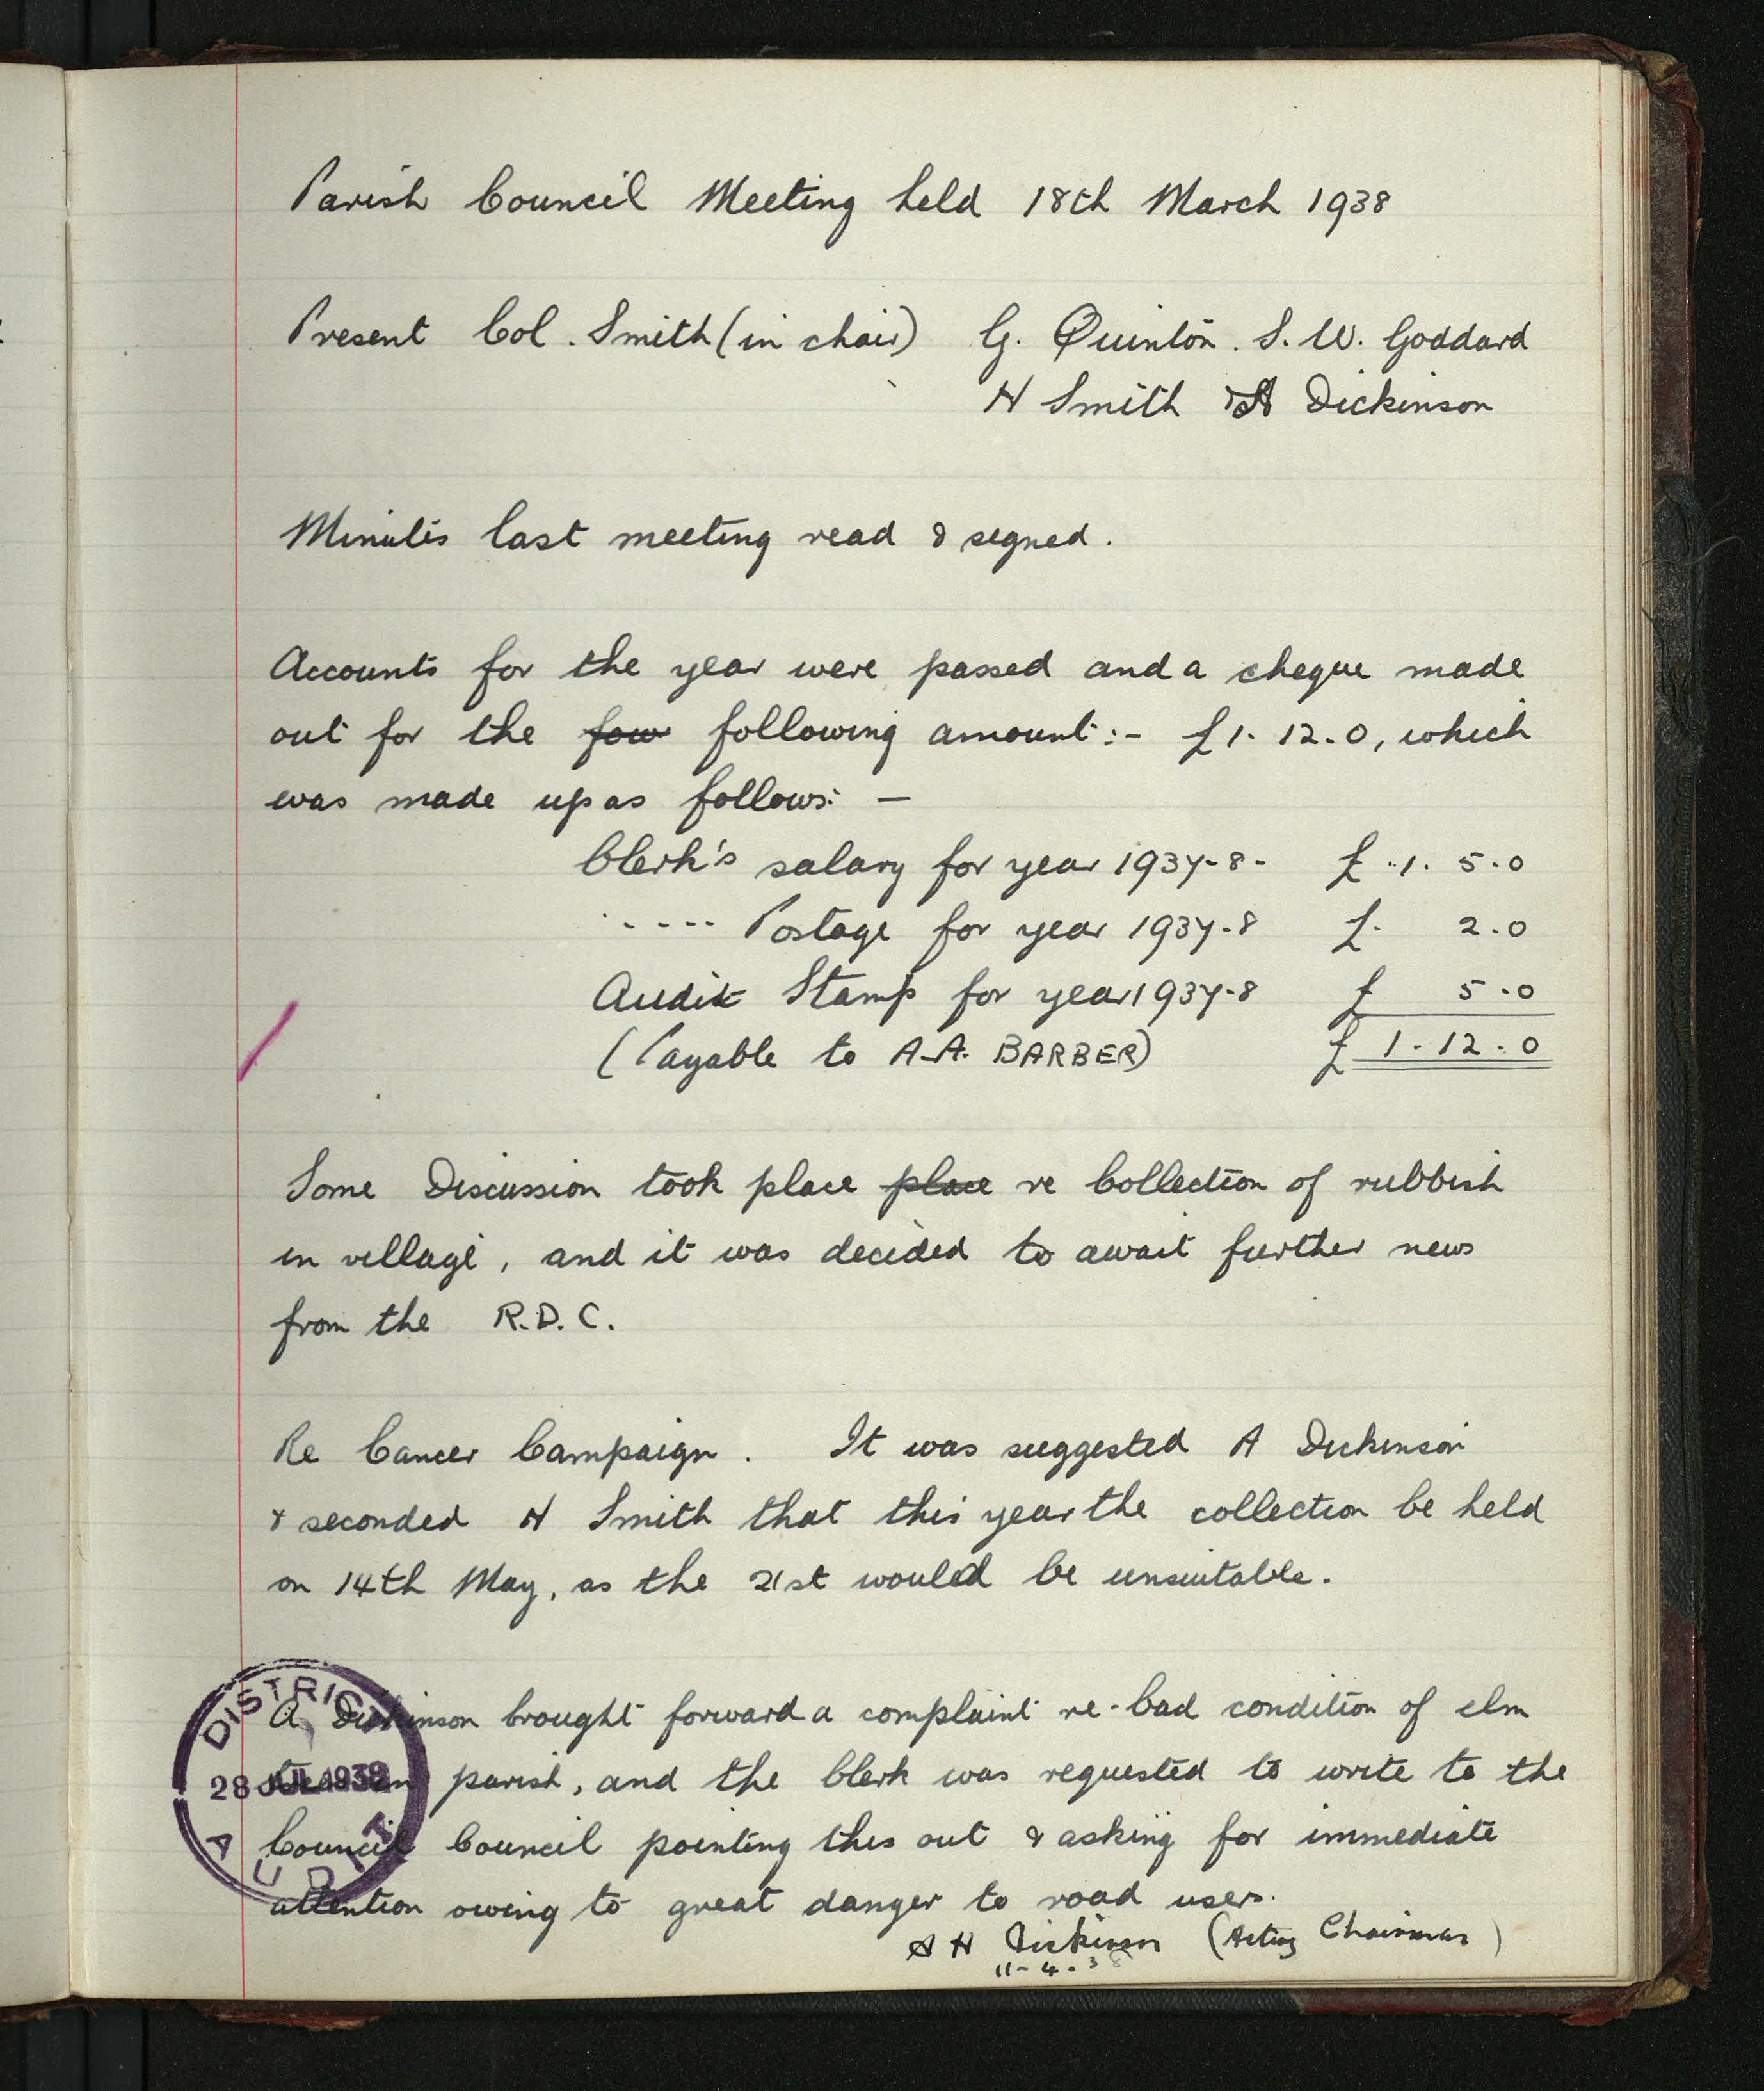 Parish Council Meeting held 18th March 1938
Present Col. Smith (in chair) G. Quinton. S. W. Goddard
H Smith & A Dickinson
Minutes last meeting read & signed.
Accounts for the year were passed and a cheque made
out for the fow following amount:- £1. 12. 0, which
was made up as follows: -
Clerk's salary for year 1937-8- £ .1. 5.0
----- Postage for year 1937-8 £. 2.0
Audit Stamp for year 1937-8 £ 5.0
(Payable to A.A. BARBER) £ 1.12.0
Some Discussion took place place re Collection of rubbish
in village, and it was decided to await further news
from the R.D.C.
Re Cancer Campaign. It was suggested A Dickinson
& seconded H Smith that this year the collection be held
on 14th May, as the 21st would be unsuitable.
A Dickinson brought forward a complaint re-bad condition of elm
in parish, and the Clerk was requested to write to the
Council Council pointing this out & asking for immediate
attention owing to great danger to road users.
A H Dickinson (Acting Chairman)
11-4-38
DISTRICT
28 JUL 1938
AUDIT